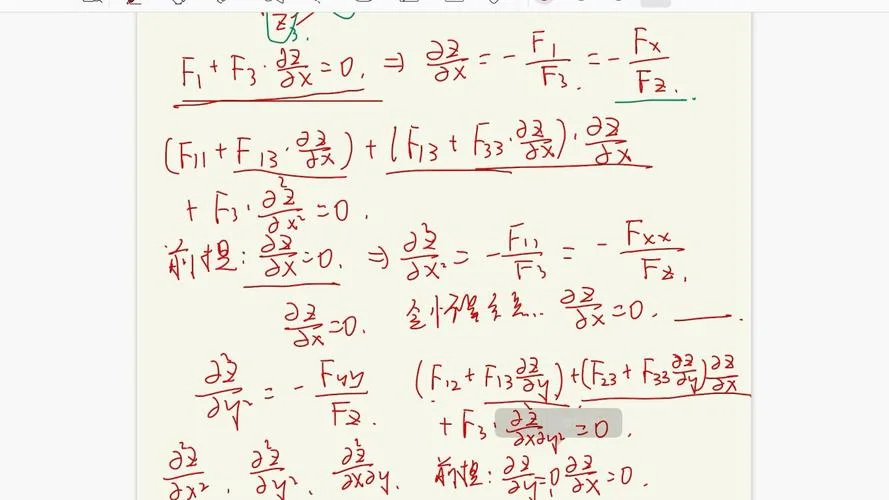 z 3
F₁ + F₃ · ∂z/∂x = 0. ⇒ ∂z/∂x = - F₁/F₃. = - Fx/Fz.
(F₁₁ + F₁₃ · ∂z/∂x) + (F₁₃ + F₃₃ · ∂z/∂x) · ∂z/∂x
+ F₃ · ∂²z/∂x² = 0.
前提: ∂z/∂x = 0. ⇒ ∂²z/∂x² = - F₁₁/F₃ = - Fxx/Fz.
∂z/∂x = 0. ∂z/∂x = 0.
∂²z/∂y² = - Fyy/Fz. (F₁₂ + F₁₃ ∂z/∂y) + (F₂₃ + F₃₃ ∂z/∂y) ∂z/∂x
+ F₃ · ∂²z/∂x∂y² = 0.
∂²z/∂x², ∂²z/∂y², ∂²z/∂x∂y. 前提: ∂z/∂y = 0, ∂z/∂x = 0.